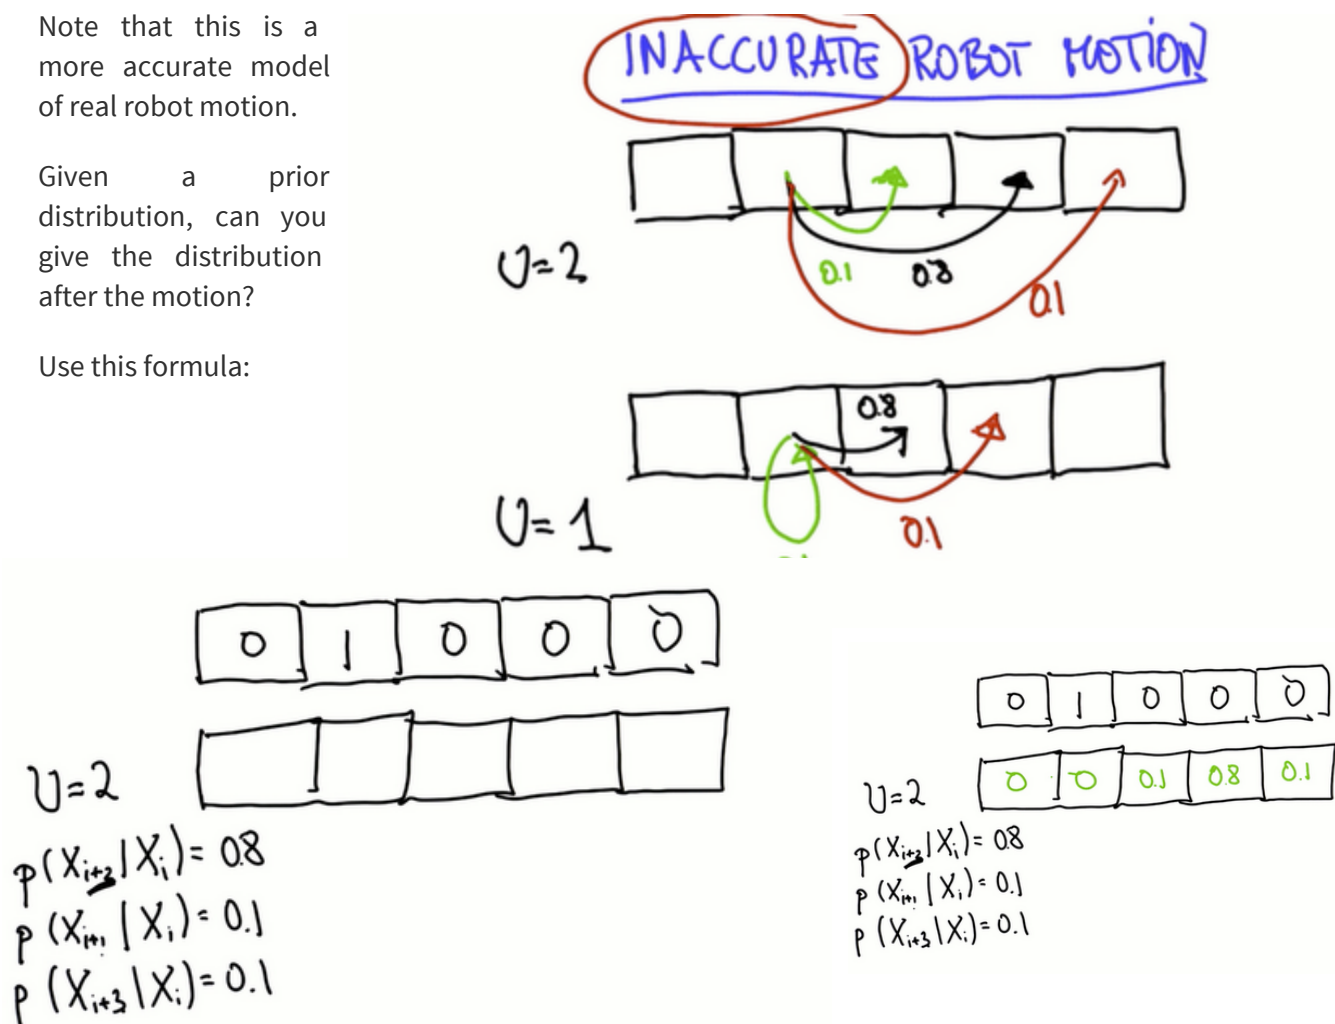 Note that this is a
more accurate model
of real robot motion.
Given a prior
distribution, can you
give the distribution
after the motion?
Use this formula:
INACCURATE ROBOT MOTION
U=2
0.1 0.8
0.1
0.8
U=1
0.1
0 1 0 0 0
U=2
p(Xi+2|Xi)=0.8
p(Xi+1|Xi)=0.1
p(Xi+3|Xi)=0.1
0 1 0 0 0
0 0 0.1 0.8 0.1
U=2
p(Xi+2|Xi)=0.8
p(Xi+1|Xi)=0.1
p(Xi+3|Xi)=0.1